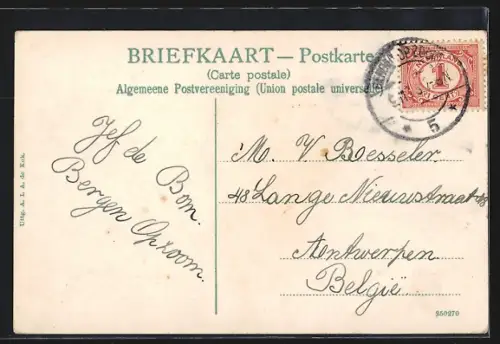 BRIEFKAART — Postkarte
(Carte postale)
Algemeene Postvereeniging (Union postale universe
Jef de Bom.
Bergen Opzoom.
M. V Besseler
48 Lange Nieuwstraat 48
Antwerpen
België
Uitg. A. I. A. de Kok.
550270
NEDERLAND
1
BERGEN OP ZOOM
5